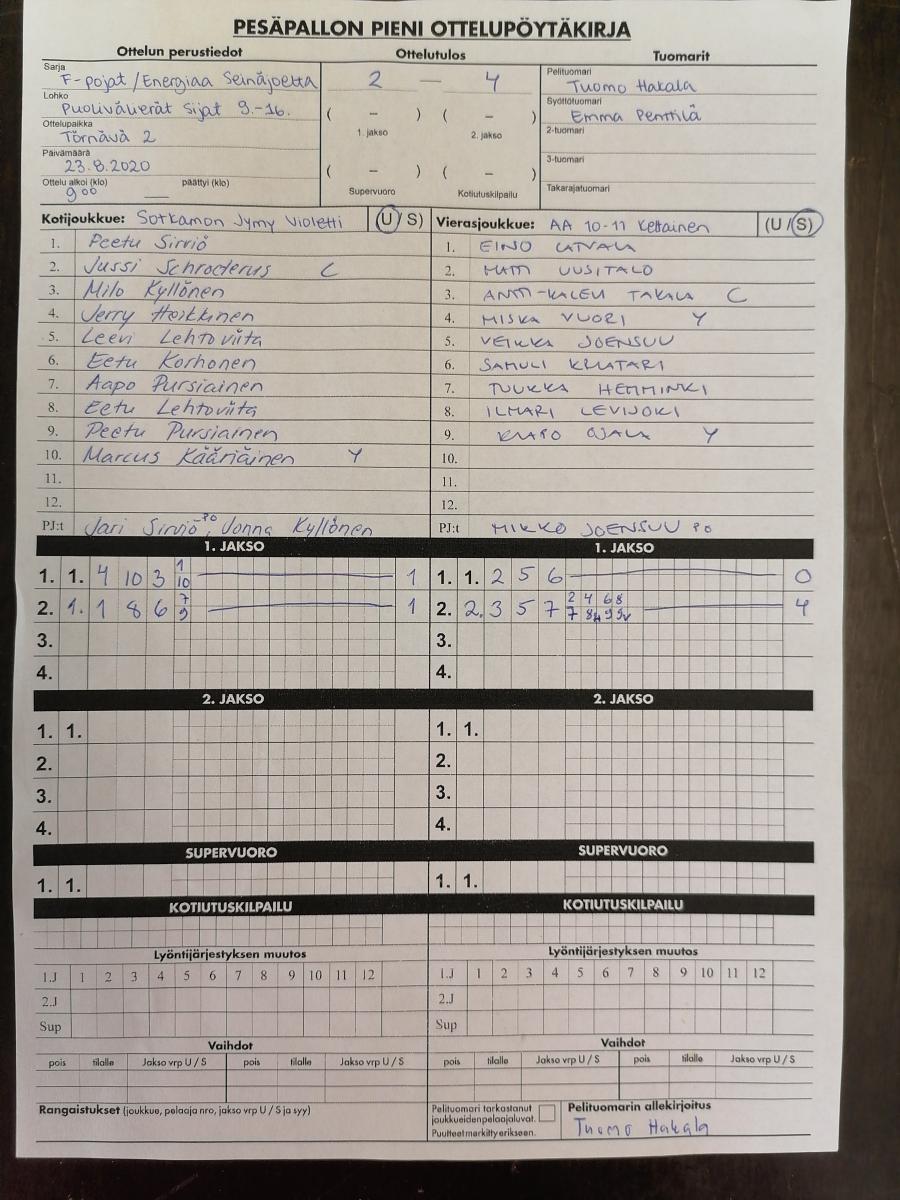 PESÄPALLON PIENI OTTELUPÖYTÄKIRJA
Ottelun perustiedot Ottelutulos Tuomarit
Sarja
F-pojat /Energiaa Seinäjoelta
Lohko
Puolivälierät sijat 9.-16.
Ottelupaikka
Törnävä 2
Päivämäärä
23.8.2020
Ottelu alkoi (klo) päättyi (klo)
9 00 —
2 — 4
( – ) ( – )
1. jakso 2. jakso
( – ) ( – )
Supervuoro Kotiutuskilpailu
Pelituomari
Tuomo Hakala
Syöttötuomari
Emma Penttilä
2-tuomari
3-tuomari
Takarajatuomari
Kotijoukkue: Sotkamon Jymy Violetti (U/S)
1. Peetu Sirviö
2. Jussi Schroderus C
3. Milo Kyllönen
4. Jerry Heikkinen
5. Leevi Lehtoviita
6. Eetu Korhonen
7. Aapo Pursiainen
8. Eetu Lehtoviita
9. Peetu Pursiainen
10. Marcus Kääriäinen Y
11.
12.
PJ:t Jari Sirviö-PO, Jonna Kyllönen
Vierasjoukkue: AA 10-11 Keltainen (U/S)
1. EINO LATVALA
2. MATTI UUSITALO
3. ANTTI-KALEVI TAKALA C
4. MISKA VUORI Y
5. VEIKKA JOENSUU
6. SAMULI
7. TUUKKA HEMMINKI
8. ILMARI LEVIJOKI
9. OJALA Y
10.
11.
12.
PJ:t MIKKO JOENSUU PO
1. JAKSO 1. JAKSO
1. 1. 4 10 3 1/10 1
2. 1. 1 8 6 7/9 1
3.
4.
1. 1. 2 5 6 0
2. 2. 3 5 7 2 4 6 8 4
3.
4.
2. JAKSO 2. JAKSO
1. 1. 1. 1.
2. 2.
3. 3.
4. 4.
SUPERVUORO SUPERVUORO
1. 1. 1. 1.
KOTIUTUSKILPAILU KOTIUTUSKILPAILU
Lyöntijärjestyksen muutos Lyöntijärjestyksen muutos
1.J 1 2 3 4 5 6 7 8 9 10 11 12 1.J 1 2 3 4 5 6 7 8 9 10 11 12
2.J 2.J
Sup Sup
Vaihdot Vaihdot
pois tilalle Jakso vrp U / S pois tilalle Jakso vrp U / S pois tilalle Jakso vrp U / S pois tilalle Jakso vrp U / S
Rangaistukset (joukkue, pelaaja nro, jakso vrp U / S ja syy)
Pelituomari tarkastanut
joukkueidenpelaajaluvat.
Puutteet merkitty erikseen.
Pelituomarin allekirjoitus
Tuomo Hakala